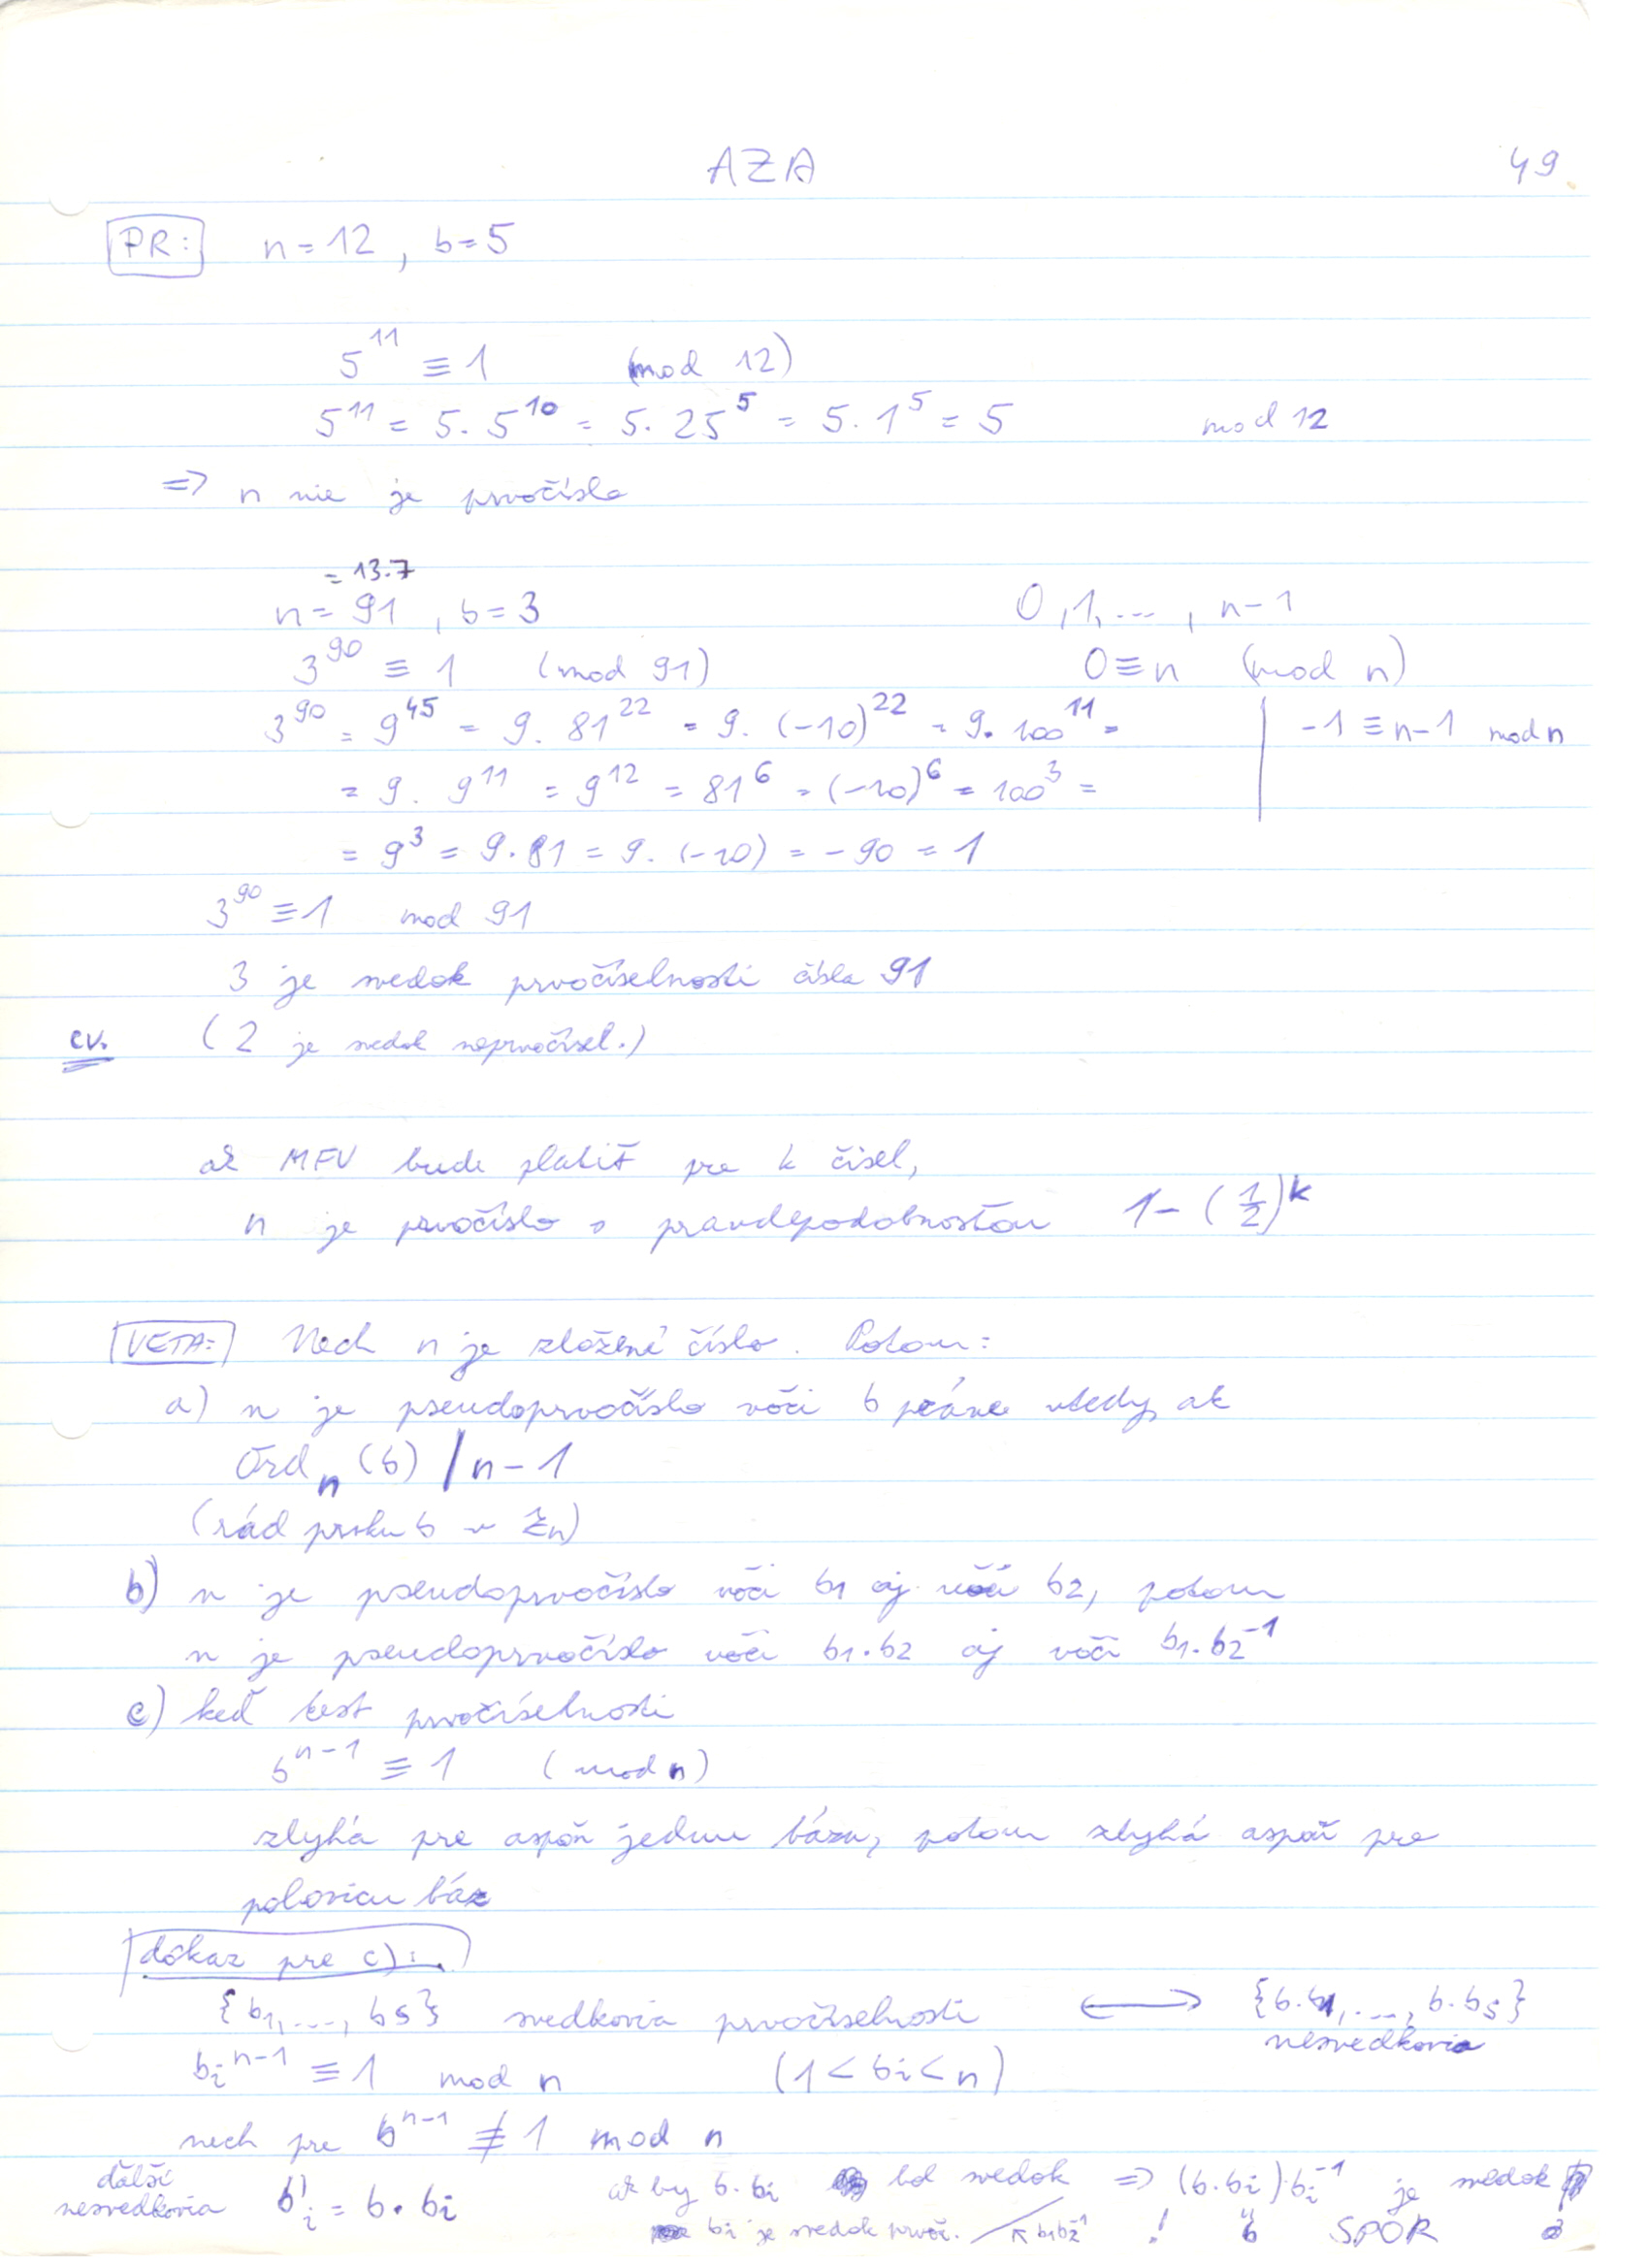 AZA 49
PR: n=12, b=5
5^11 ≡ 1 (mod 12)
5^11 = 5.5^10 = 5.25^5 = 5.1^5 = 5 mod 12
=> n nie je prvočíslo
= 13.7
n = 91, b = 3 0,1,..., n-1
3^90 ≡ 1 (mod 91) 0≡n (mod n)
3^90 = 9^45 = 9.81^22 = 9.(-10)^22 = 9.100^11 = | -1≡n-1 mod n
= 9.9^11 = 9^12 = 81^6 = (-10)^6 = 100^3 =
= 9^3 = 9.81 = 9.(-10) = -90 = 1
3^90 ≡ 1 mod 91
3 je svedok prvočíselnosti čísla 91
cv. (2 je svedok neprvočísel.)
ak MFV bude platiť pre k čísel,
n je prvočíslo s pravdepodobnosťou 1-(1/2)^k
VETA: Nech n je zložené číslo. Potom:
a) n je pseudoprvočíslo voči b práve vtedy, ak
Ord_n (b) / n-1
(rád prvku b v Z_n)
b) n je pseudoprvočíslo voči b1 aj voči b2, potom
n je pseudoprvočíslo voči b1.b2 aj voči b1.b2^-1
c) keď test prvočíselnosti
b^n-1 ≡ 1 (mod n)
zlyhá pre aspoň jednu bázu, potom zlyhá aspoň pre
polovicu báz
dôkaz pre c):
{b1,..., bs} svedkovia prvočíselnosti <-> {b.b1,..., b.bs}
nesvedkovia
bi^n-1 ≡ 1 mod n (1 < bi < n)
nech pre b^n-1 ≢ 1 mod n
ďalší nesvedkovia b'i = b.bi ak by b.bi bol svedok => (b.bi).bi^-1 je svedok
bi je svedok prvoč. b1b2^-1 ! " b SPOR